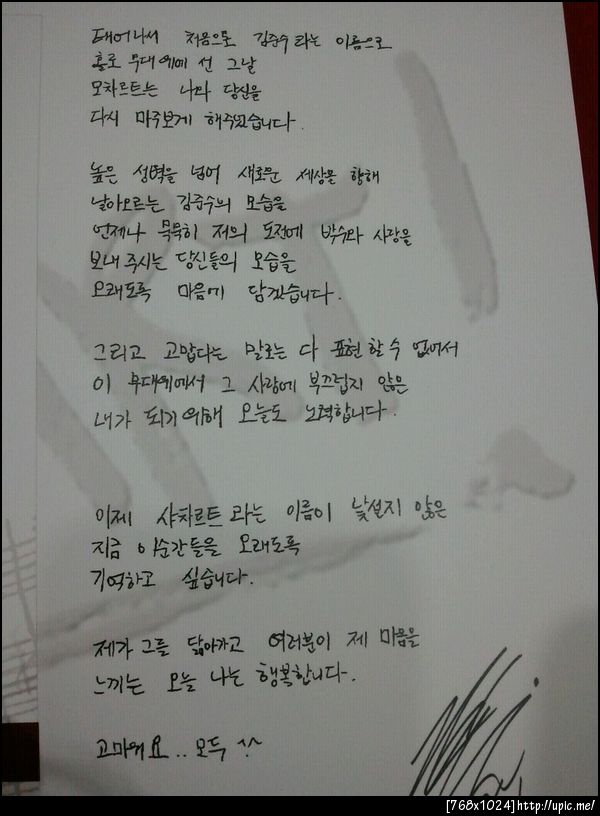 태어나서 처음으로 김준수라는 이름으로
홀로 무대위에 선 그날
모차르트는 나와 당신을
다시 마주보게 해주었습니다.
높은 성벽을 넘어 새로운 세상을 향해
날아오르는 김준수의 모습을
언제나 묵묵히 저의 도전에 박수와 사랑을
보내주시는 당신들의 모습을
오래도록 마음에 담겠습니다.
그리고 고맙다는 말로는 다 표현할 수 없어서
이 무대위에서 그 사랑에 부끄럽지 않은
내가 되기 위해 오늘도 노력합니다.
이제 샤차르트라는 이름이 낯설지 않은
지금 이순간들을 오래도록
기억하고 싶습니다.
제가 그를 닮아가고 여러분이 제 마음을
느끼는 오늘 나는 행복합니다.
고마워요.. 모두 ^^
[768x1024]http://upic.me/